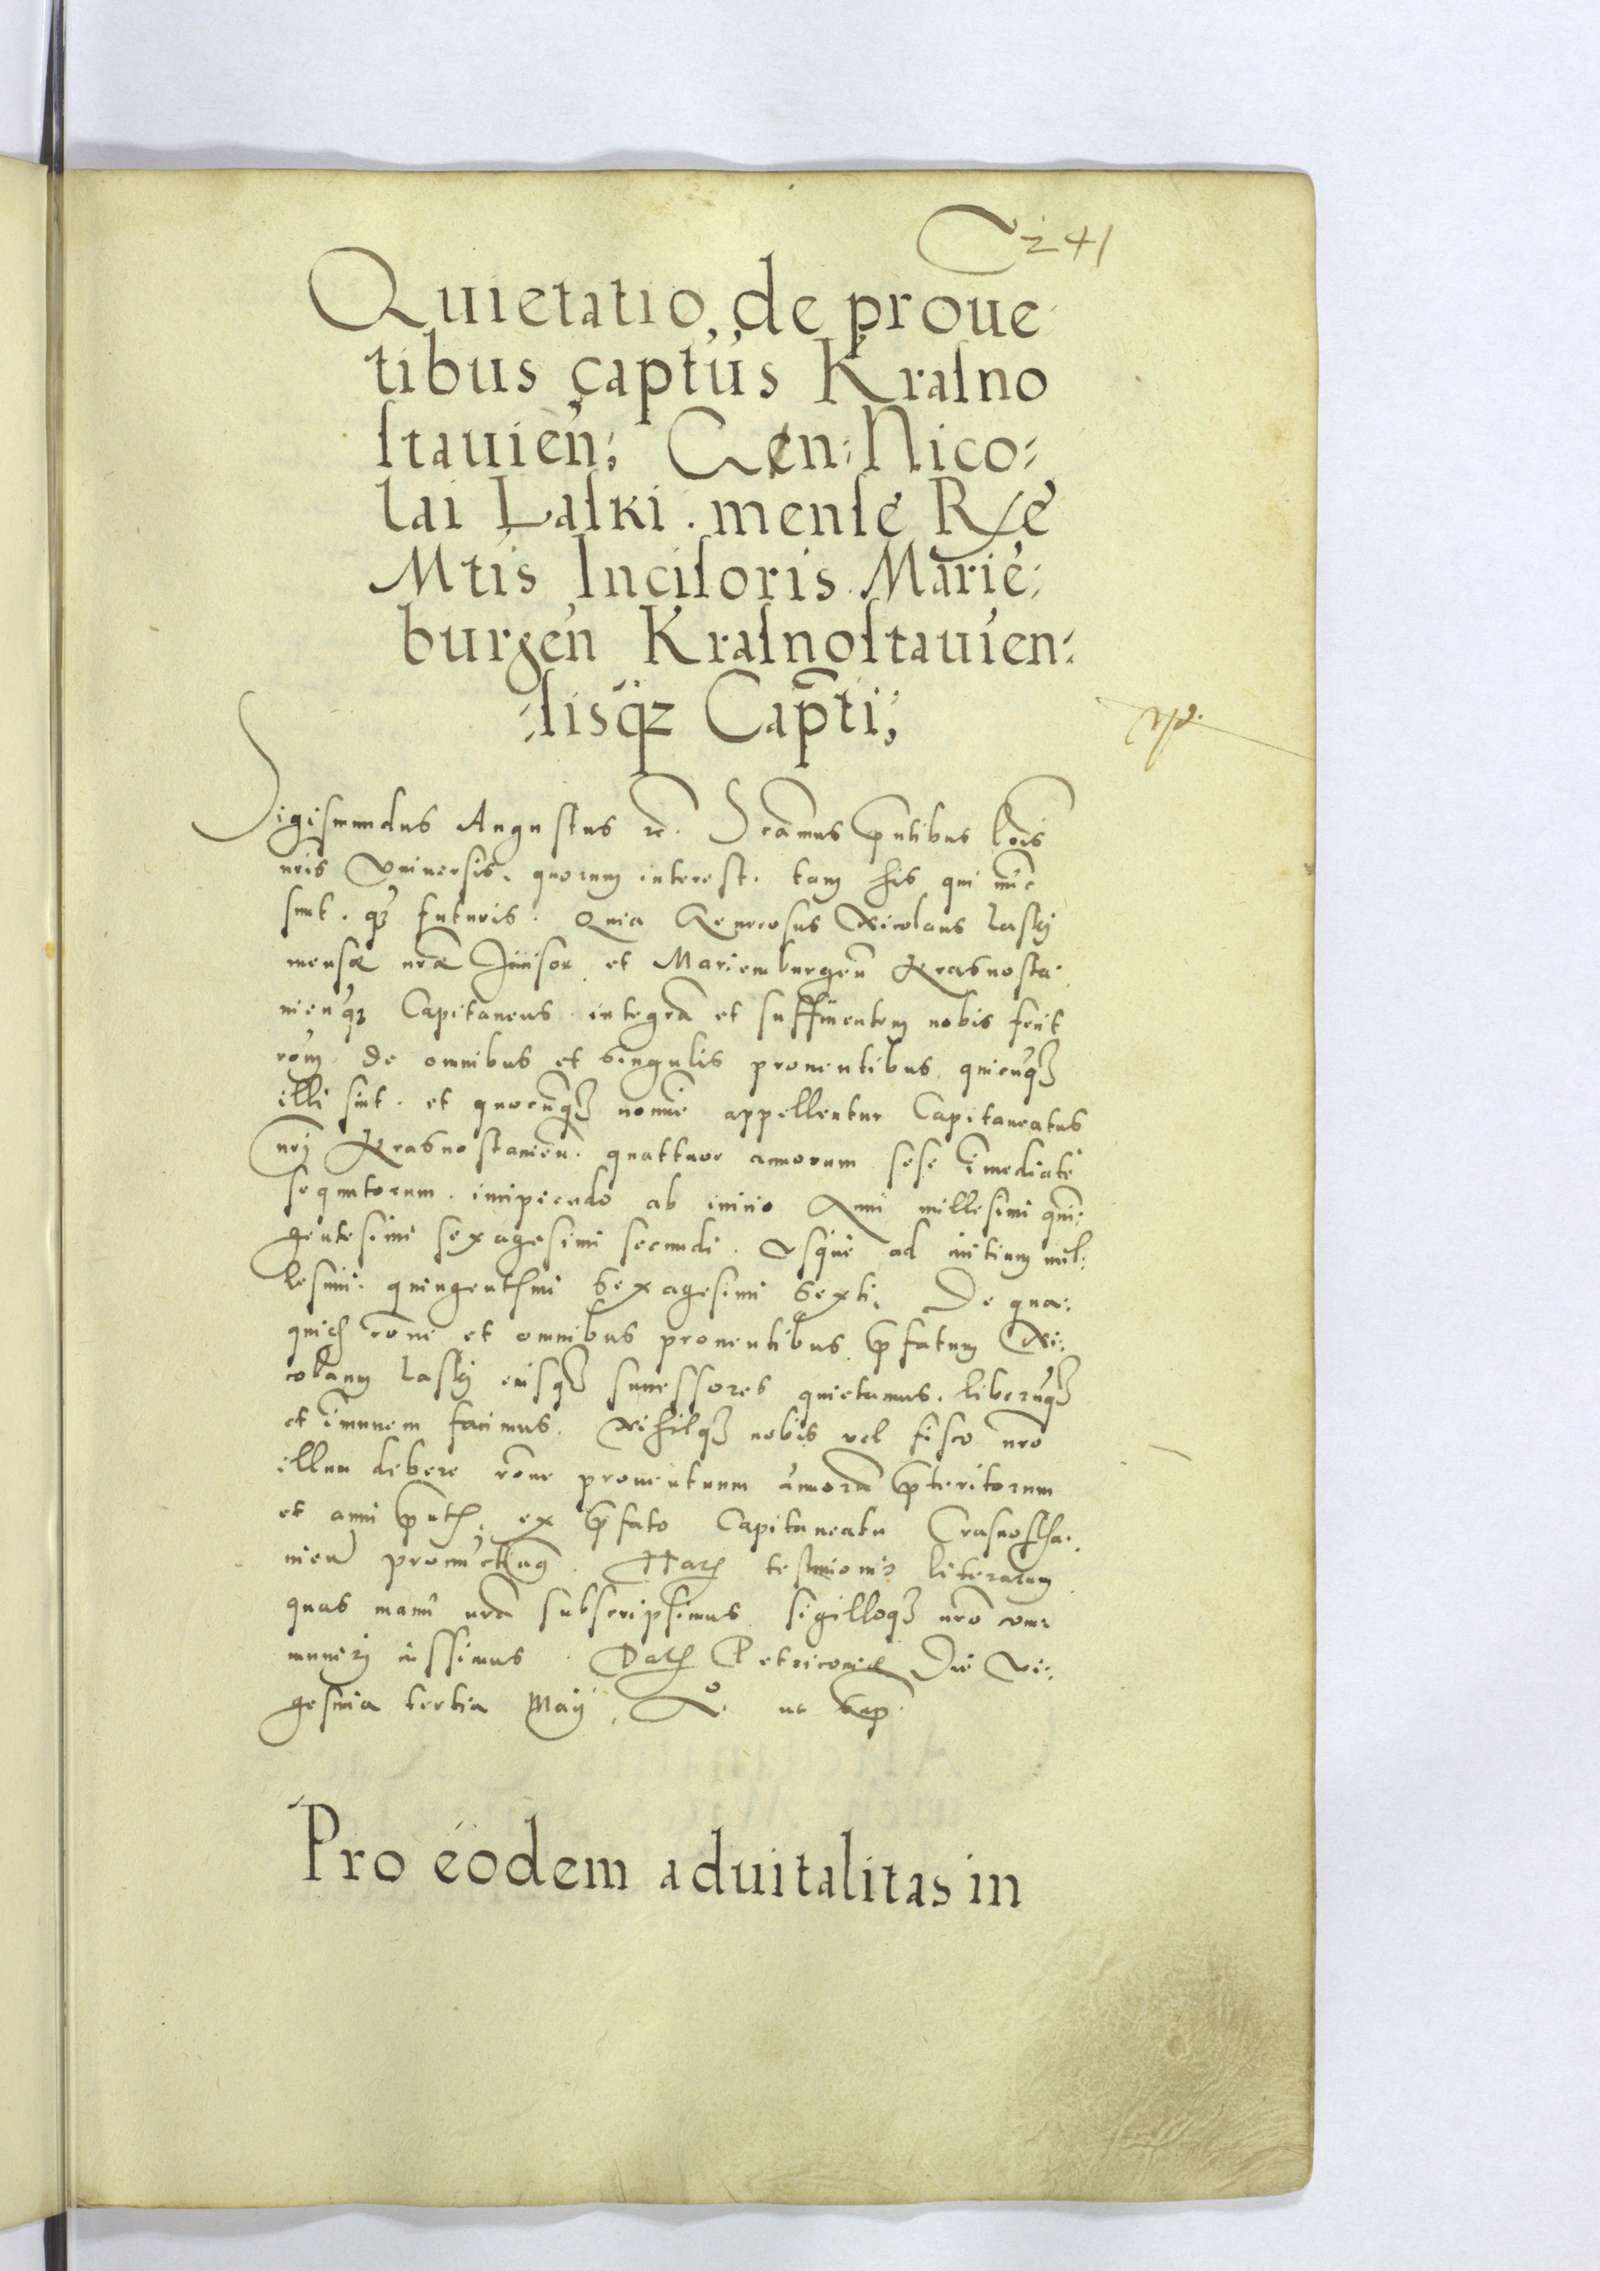 241
Quietatio de proue
tibus captus Krasno
stauien; Gen: Nico:
lai Laski. mense Re
Mtis Incisoris Marie:
burgen Krasnostauien:
:sisq3 Capti;
Sigismundus Augustus etc. Scamus pntibus lris
nris Vniuersis, quorum interest. tam his qui nuc
sunt. q3 futuris. Quia Generosus Nicolaus Laskj
mensae nrae Incisor et Mariemburgen Krasnosta:
uienq3 Capitaneus integra et sufficientem nobis fecit
ronem de omnibus et singulis prouentibus quicuq3
illi sint. et quocunq3 nomine appellentur Capitaneatus
nrj Krasnostauien. quattuor annorum sese imediate
sequutorum. incipiendo ab initio Anni millesimi quin:
gentesimi sexagesimi secundi. Vsque ad initium mil:
lesimi quingentesimi sexagesimi sexti. De qua:
quidem rone et omnibus prouentibus pfatum Ni:
colaum Laskj eiusq3 successores quietamus. liberuq3
et imunem facimus. Nihilq3 nobis vel fisco nro
illum debere rone prouentuum annora pteritorum
et anni pntis ex pfato Capitaneatu Crasnostha:
uien Harum testimonio literarum
quas manu nra subscripsimus sigilloq3 nro com
munirj iussimus. Datum Petricouiae Die Vi:
gesima tertia Maij. Ao. ut sup.
Pro eodem aduitalitas in